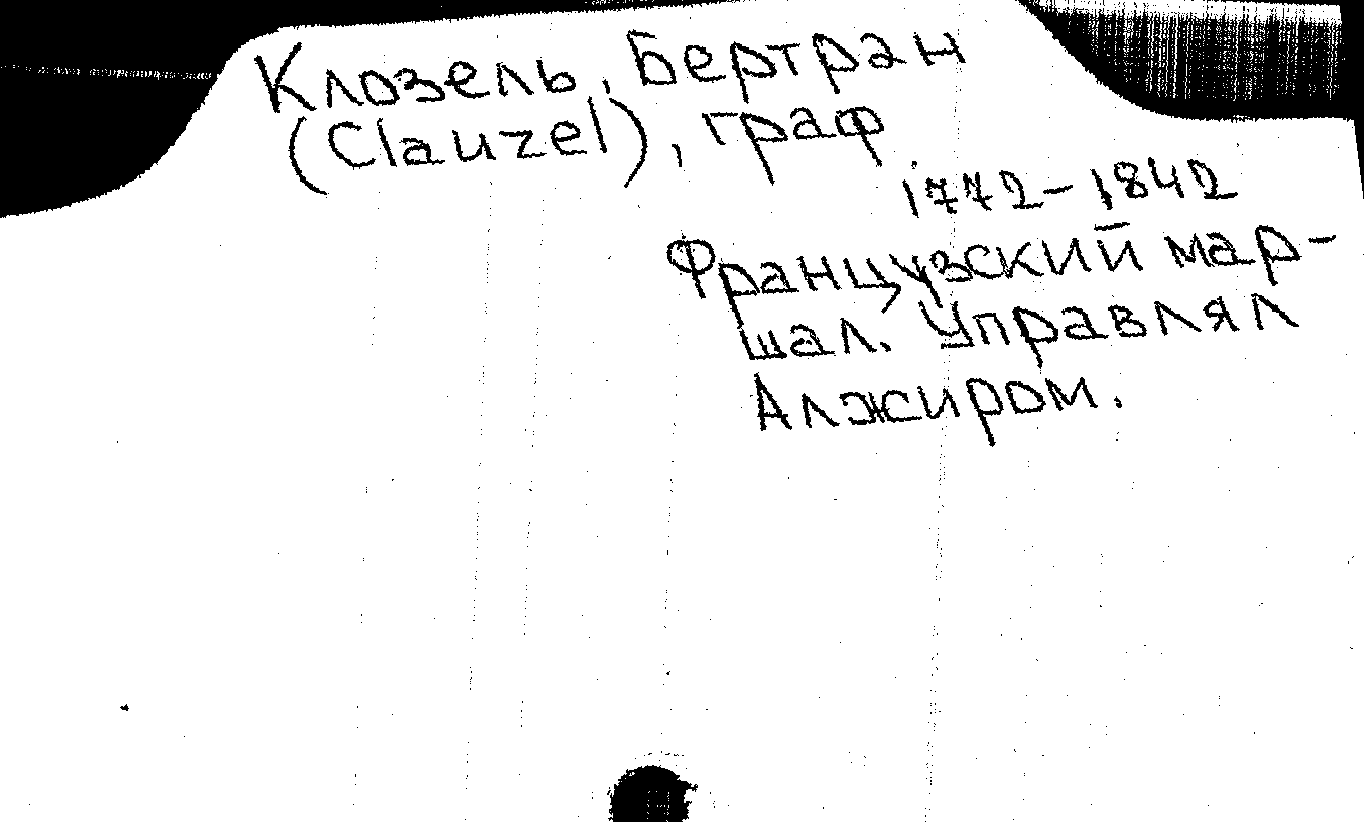 Клозель, Бертран
(Clauzel), граф
1772-1842
Французский мар-
шал. Управлял
Алжиром.